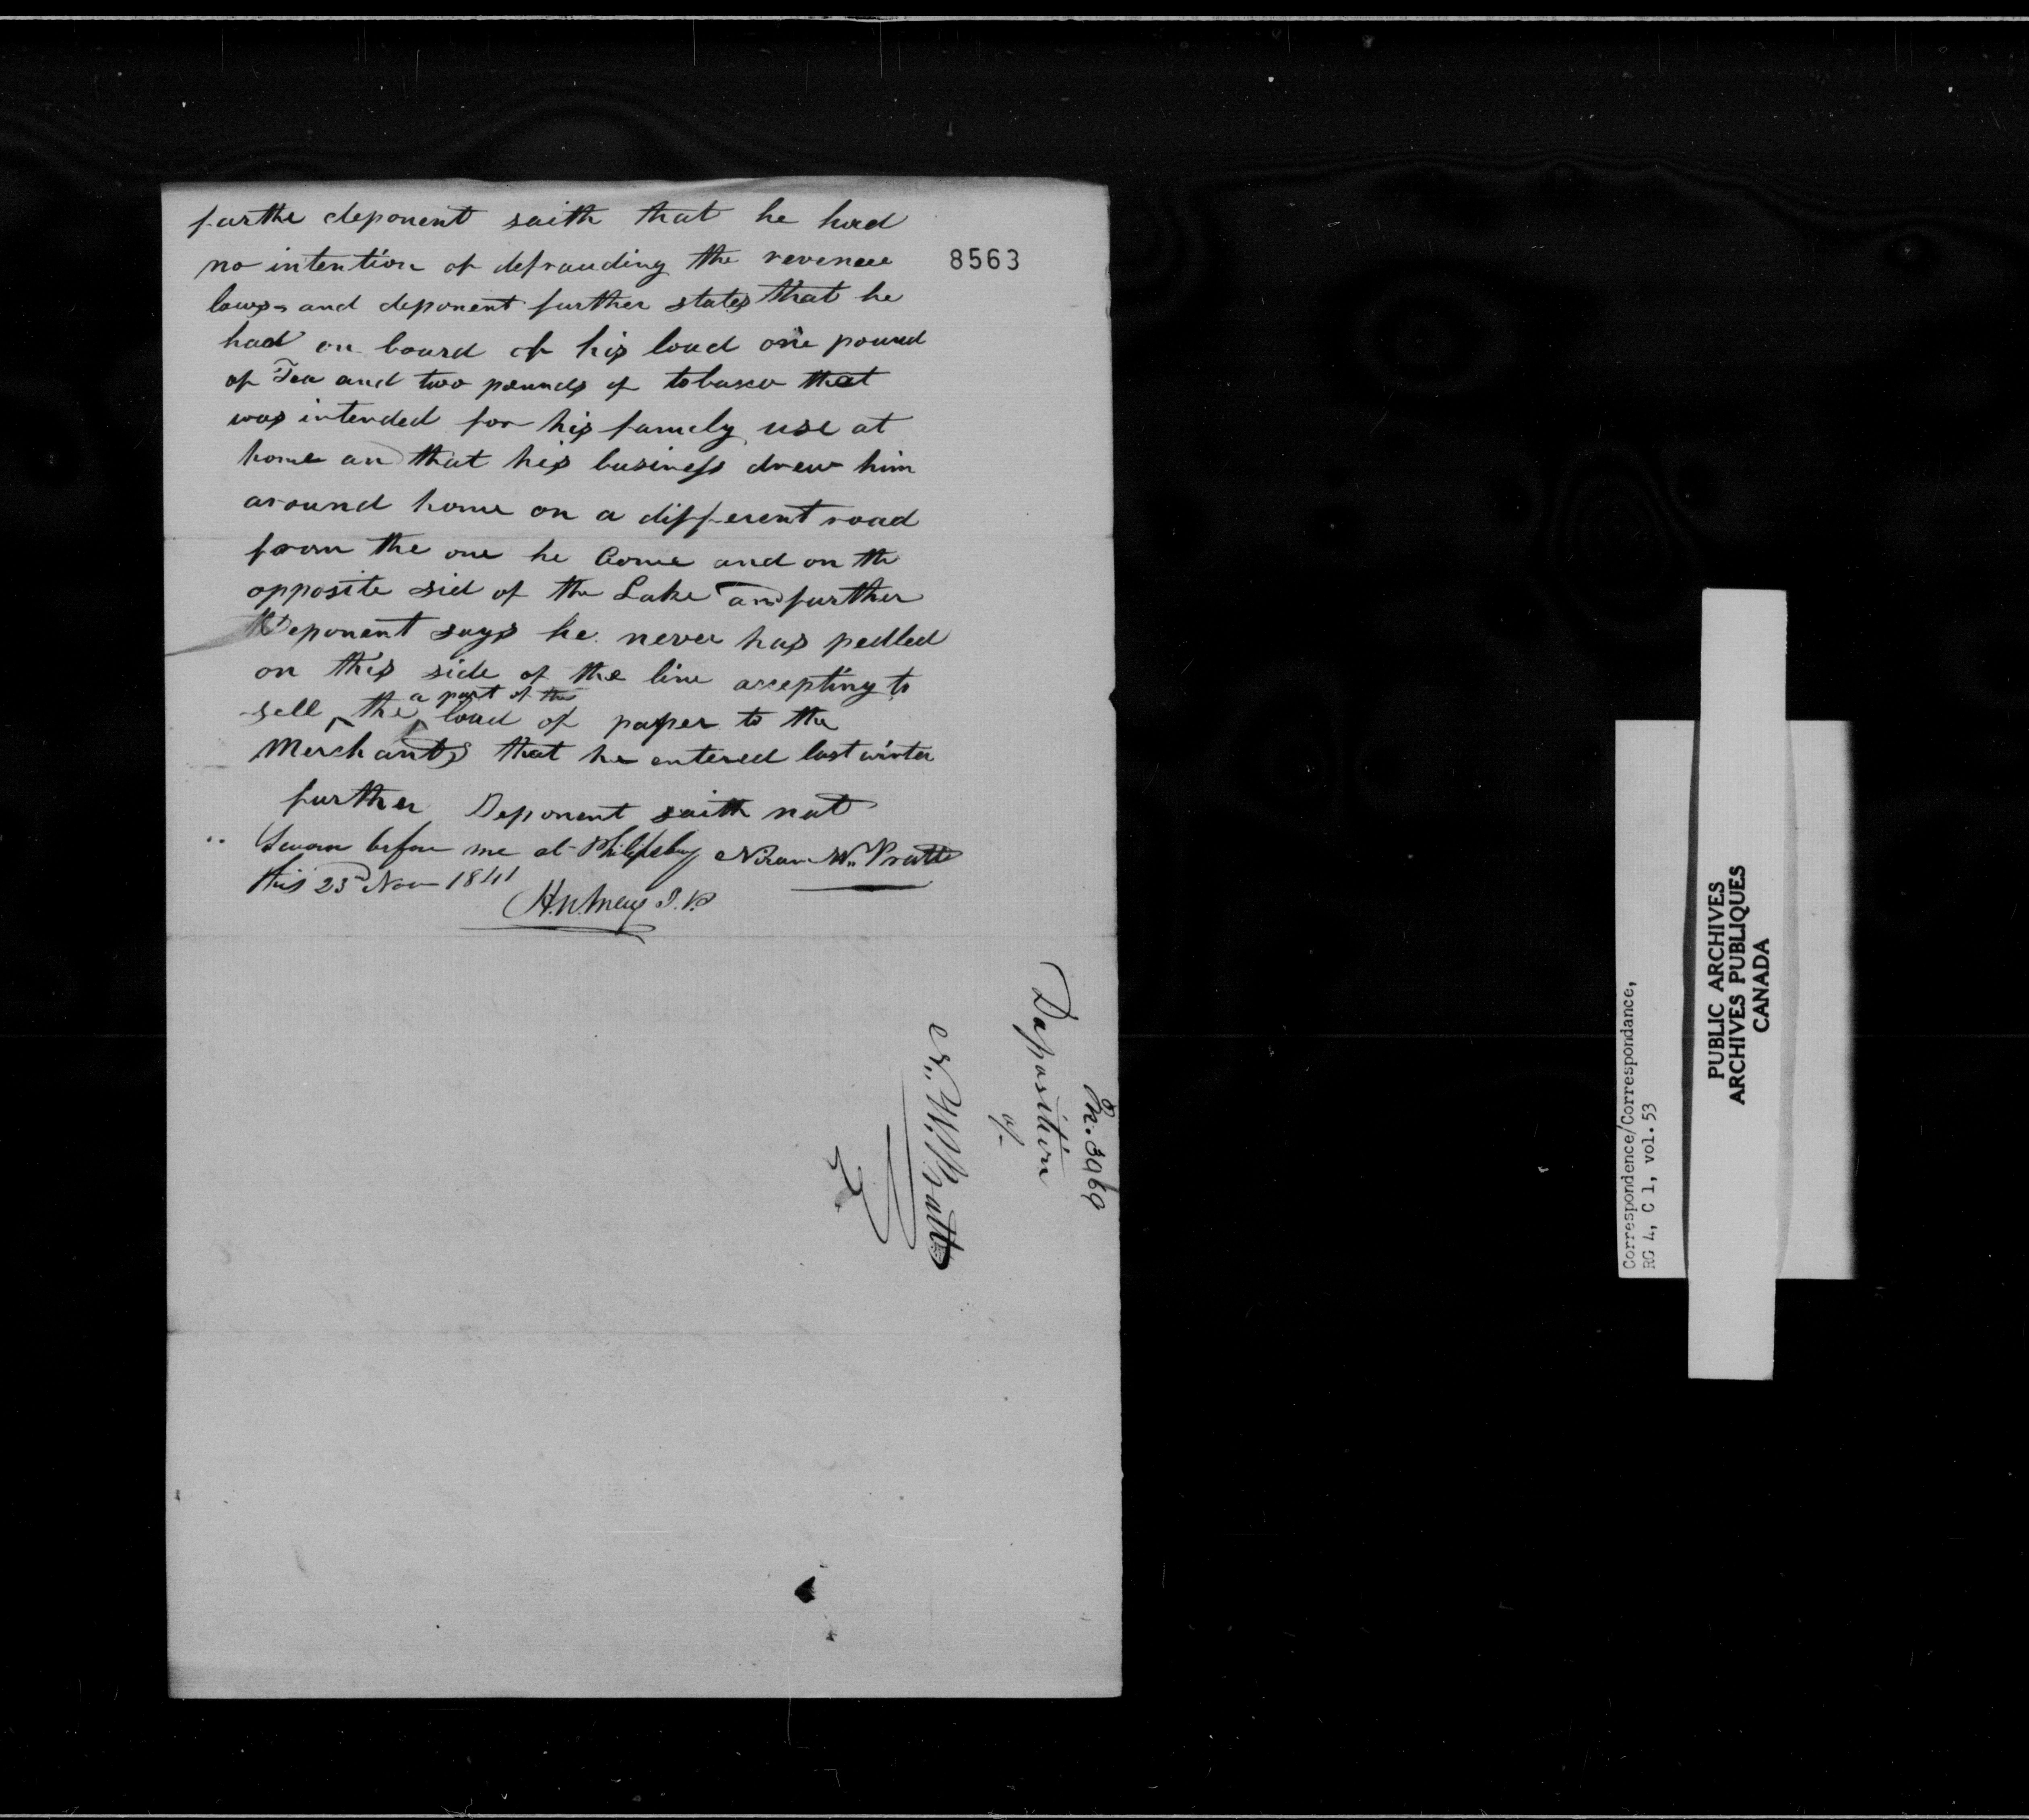 farthe deponent saith that he had
no intention of defrauding the revenue
8563
laws and deponent further states that he
had on board of his load one pound
of Tea and two pounds of tobacco that
was intended for his famely use at
home and that his business drew him
around home on a different road
from the one he Come and on the
opposite sid of the Lake and further
Deponent says he never has pedled
on this side of the line accepting to
a part of the
sell the load of paper to the
Merchants that he entered last winter
further Deponent saith not
Sworn before me at Philipsburg Niram W. Pratt
this 23d Nov 1841
J.P.
Pr. 3069
Deposition
of
N. W. Pratt
Correspondence/Correspondance,
RG 4, C 1, vol. 53
PUBLIC ARCHIVES
ARCHIVES PUBLIQUES
CANADA